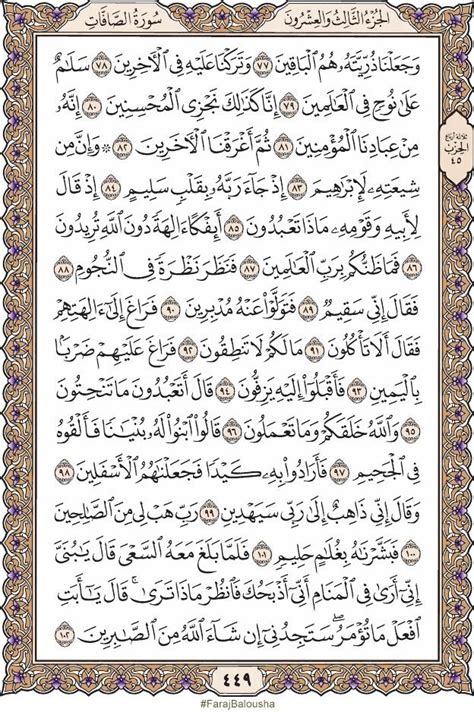 سُورَةُ الصَّافَّاتِ الجُزْءُ الثَّالِثُ وَالعِشْرُونَ
وَجَعَلْنَا ذُرِّيَّتَهُۥ هُمُ ٱلْبَاقِينَ ٧٧ وَتَرَكْنَا عَلَيْهِ فِي ٱلْـَٔاخِرِينَ ٧٨ سَلَٰمٌ
عَلَىٰ نُوحٍ فِي ٱلْعَٰلَمِينَ ٧٩ إِنَّا كَذَٰلِكَ نَجْزِي ٱلْمُحْسِنِينَ ٨٠ إِنَّهُۥ
مِنْ عِبَادِنَا ٱلْمُؤْمِنِينَ ٨١ ثُمَّ أَغْرَقْنَا ٱلْـَٔاخَرِينَ ٨٢ ۞ وَإِنَّ مِن
شِيعَتِهِۦ لَإِبْرَٰهِيمَ ٨٣ إِذْ جَآءَ رَبَّهُۥ بِقَلْبٍ سَلِيمٍ ٨٤ إِذْ قَالَ
لِأَبِيهِ وَقَوْمِهِۦ مَاذَا تَعْبُدُونَ ٨٥ أَئِفْكًا ءَالِهَةً دُونَ ٱللَّهِ تُرِيدُونَ
٨٦ فَمَا ظَنُّكُم بِرَبِّ ٱلْعَٰلَمِينَ ٨٧ فَنَظَرَ نَظْرَةً فِي ٱلنُّجُومِ ٨٨
فَقَالَ إِنِّي سَقِيمٌ ٨٩ فَتَوَلَّوْا۟ عَنْهُ مُدْبِرِينَ ٩٠ فَرَاغَ إِلَىٰٓ ءَالِهَتِهِمْ
فَقَالَ أَلَا تَأْكُلُونَ ٩١ مَا لَكُمْ لَا تَنطِقُونَ ٩٢ فَرَاغَ عَلَيْهِمْ ضَرْبًۢا
بِٱلْيَمِينِ ٩٣ فَأَقْبَلُوٓا۟ إِلَيْهِ يَزِفُّونَ ٩٤ قَالَ أَتَعْبُدُونَ مَا تَنْحِتُونَ
٩٥ وَٱللَّهُ خَلَقَكُمْ وَمَا تَعْمَلُونَ ٩٦ قَالُوا۟ ٱبْنُوا۟ لَهُۥ بُنْيَٰنًا فَأَلْقُوهُ
فِي ٱلْجَحِيمِ ٩٧ فَأَرَادُوا۟ بِهِۦ كَيْدًا فَجَعَلْنَٰهُمُ ٱلْأَسْفَلِينَ ٩٨
وَقَالَ إِنِّي ذَاهِبٌ إِلَىٰ رَبِّي سَيَهْدِينِ ٩٩ رَبِّ هَبْ لِي مِنَ ٱلصَّٰلِحِينَ
١٠٠ فَبَشَّرْنَٰهُ بِغُلَٰمٍ حَلِيمٍ ١٠١ فَلَمَّا بَلَغَ مَعَهُ ٱلسَّعْيَ قَالَ يَٰبُنَيَّ
إِنِّيٓ أَرَىٰ فِي ٱلْمَنَامِ أَنِّيٓ أَذْبَحُكَ فَٱنظُرْ مَاذَا تَرَىٰ ۚ قَالَ يَٰٓأَبَتِ
ٱفْعَلْ مَا تُؤْمَرُ ۖ سَتَجِدُنِيٓ إِن شَآءَ ٱللَّهُ مِنَ ٱلصَّٰبِرِينَ ١٠٢
الحِزْب
٤٥
٤٤٩
#FarajBalousha